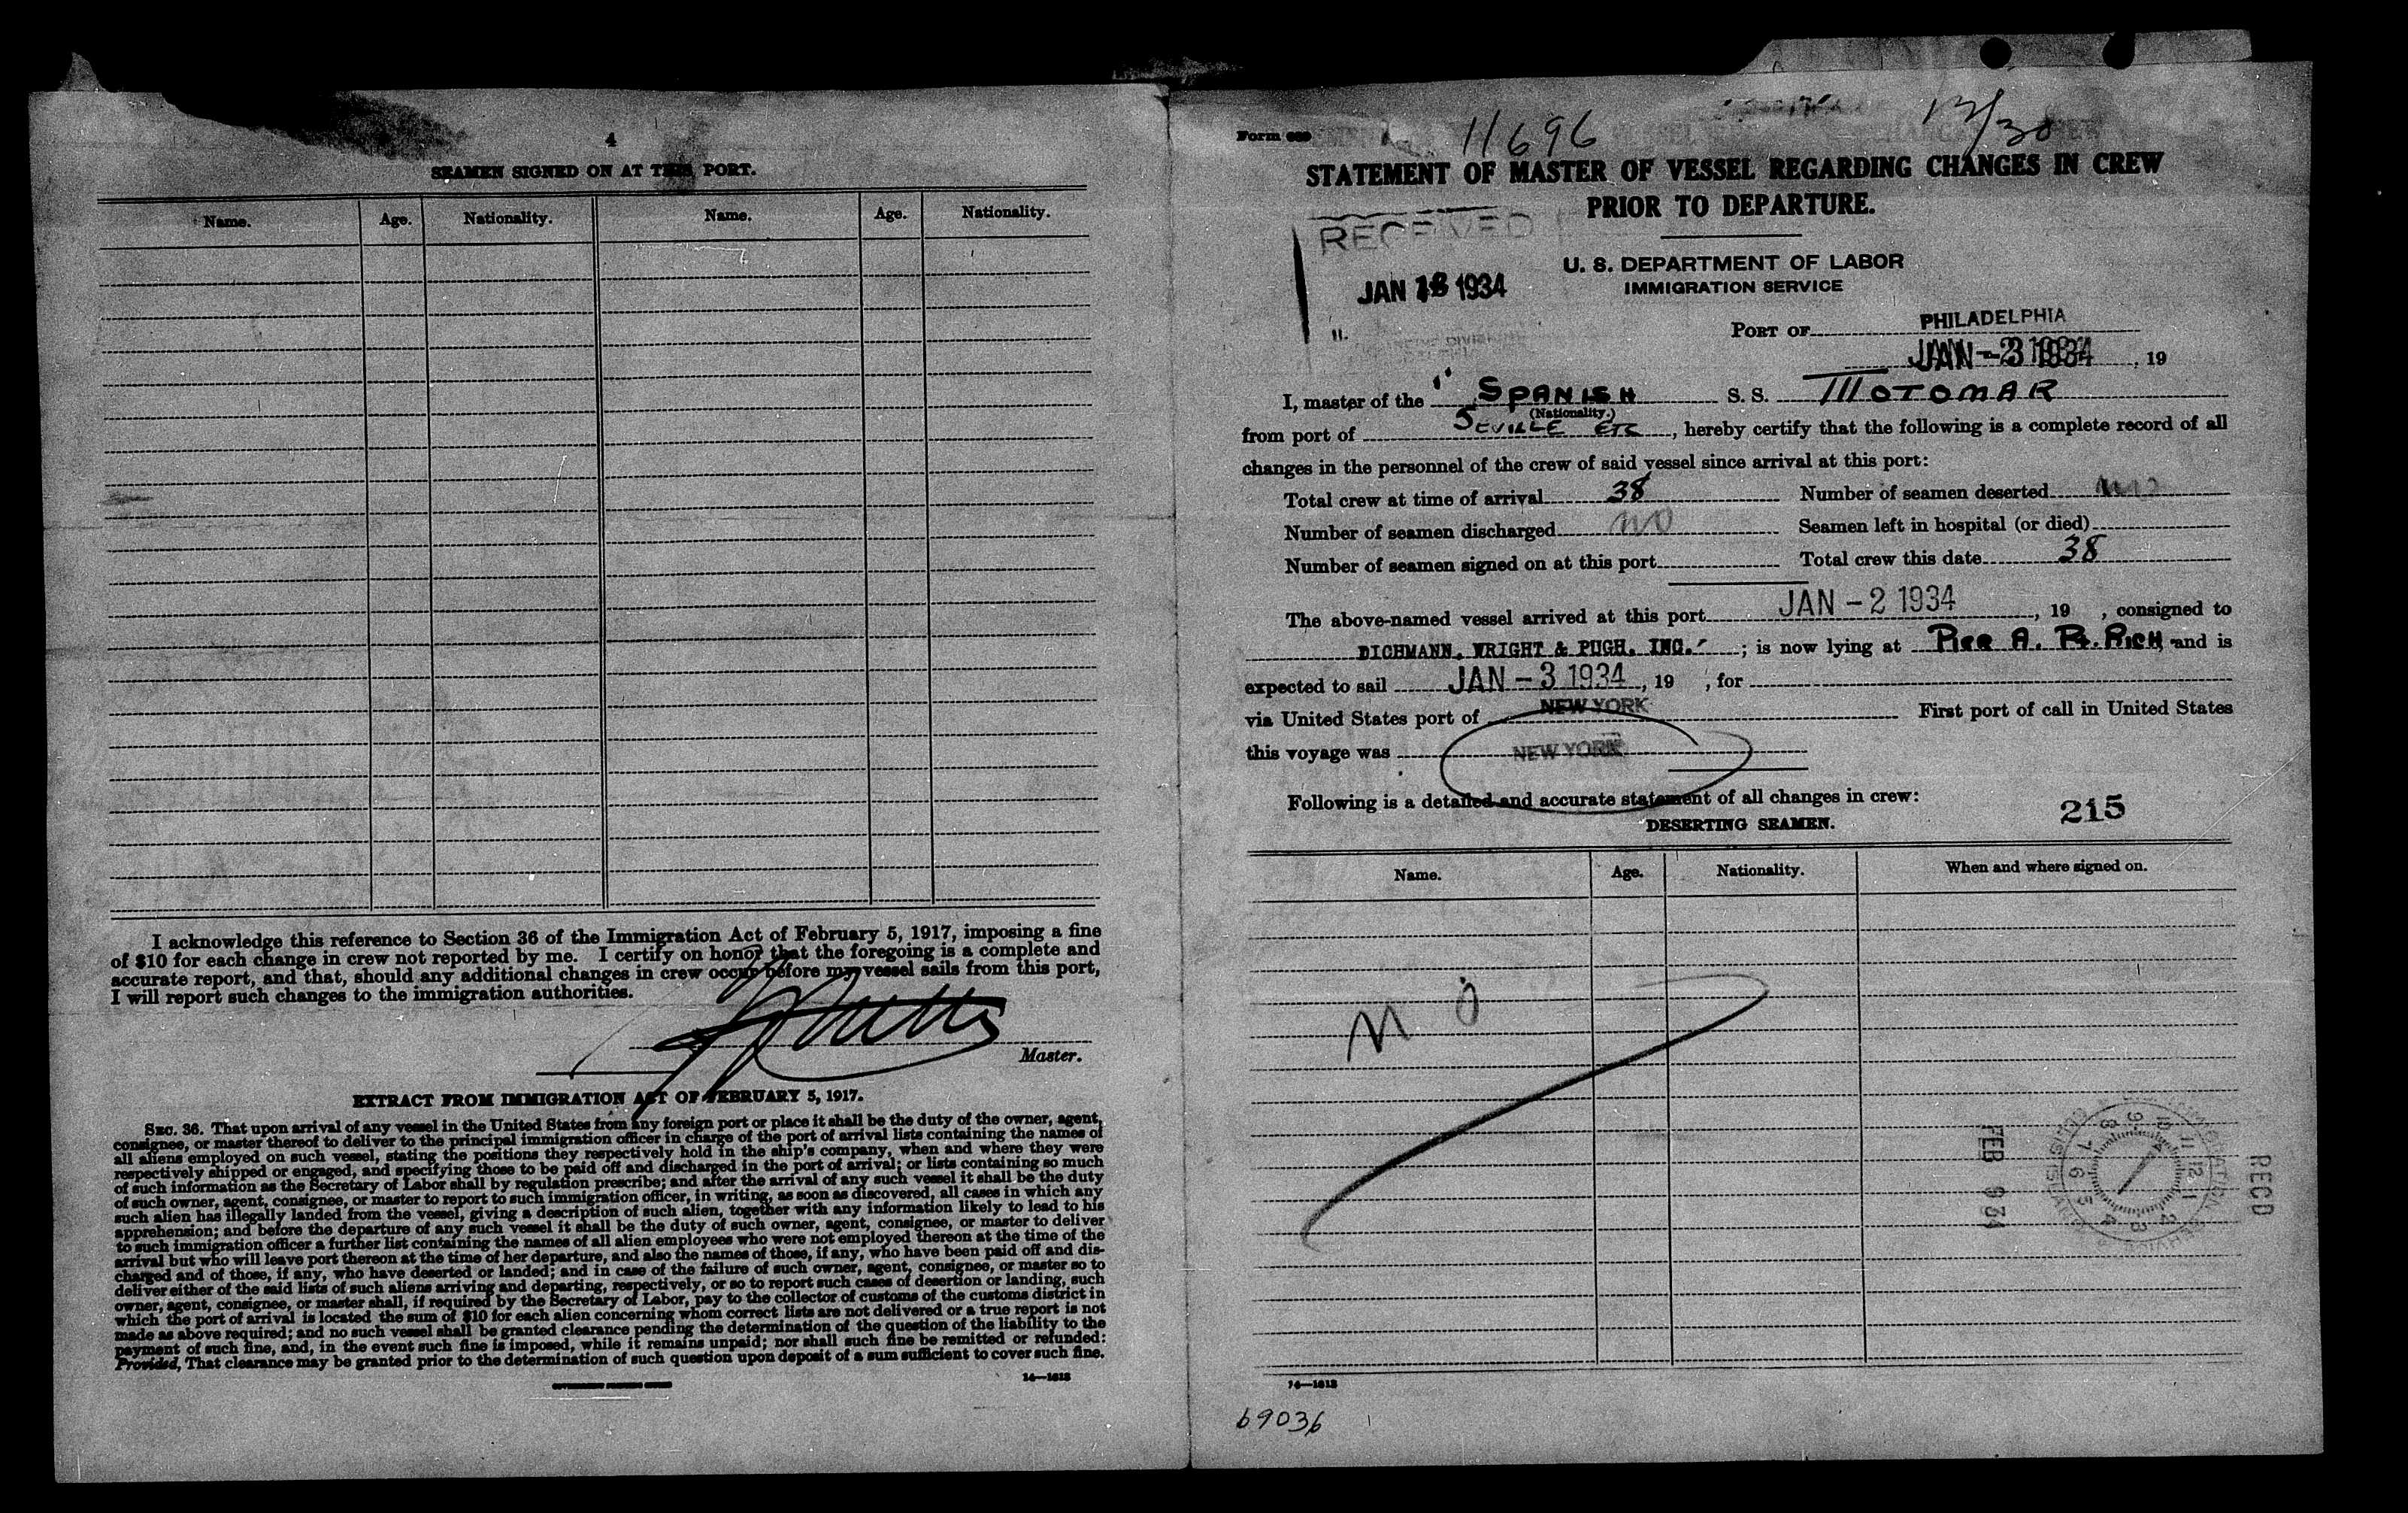 4
SEAMEN SIGNED ON AT THIS PORT.
Name. Age. Nationality. Name. Age. Nationality.
I acknowledge this reference to Section 36 of the Immigration Act of February 5, 1917, imposing a fine
of $10 for each change in crew not reported by me. I certify on honor that the foregoing is a complete and
accurate report, and that, should any additional changes in crew occur before my vessel sails from this port,
I will report such changes to the immigration authorities.
Master.
EXTRACT FROM IMMIGRATION ACT OF FEBRUARY 5, 1917.
SEC. 36. That upon arrival of any vessel in the United States from any foreign port or place it shall be the duty of the owner, agent,
consignee, or master thereof to deliver to the principal immigration officer in charge of the port of arrival lists containing the names of
all aliens employed on such vessel, stating the positions they respectively hold in the ship's company, when and where they were
respectively shipped or engaged, and specifying those to be paid off and discharged in the port of arrival; or lists containing so much
of such information as the Secretary of Labor shall by regulation prescribe; and after the arrival of any such vessel it shall be the duty
of such owner, agent, consignee, or master to report to such immigration officer, in writing, as soon as discovered, all cases in which any
such alien has illegally landed from the vessel, giving a description of such alien, together with any information likely to lead to his
apprehension; and before the departure of any such vessel it shall be the duty of such owner, agent, consignee, or master to deliver
to such immigration officer a further list containing the names of all alien employees who were not employed thereon at the time of the
arrival but who will leave port thereon at the time of her departure, and also the names of those, if any, who have been paid off and dis-
charged and of those, if any, who have deserted or landed; and in case of the failure of such owner, agent, consignee, or master so to
deliver either of the said lists of such aliens arriving and departing, respectively, or so to report such cases of desertion or landing, such
owner, agent, consignee, or master shall, if required by the Secretary of Labor, pay to the collector of customs of the customs district in
which the port of arrival is located the sum of $10 for each alien concerning whom correct lists are not delivered or a true report is not
made as above required; and no such vessel shall be granted clearance pending the determination of the question of the liability to the
payment of such fine, and, in the event such fine is imposed, while it remains unpaid; nor shall such fine be remitted or refunded:
Provided, That clearance may be granted prior to the determination of such question upon deposit of a sum sufficient to cover such fine.
14—1613
Form 689
11696
12/30
STATEMENT OF MASTER OF VESSEL REGARDING CHANGES IN CREW
PRIOR TO DEPARTURE.
RECEIVED
JAN 18 1934
U. S. DEPARTMENT OF LABOR
IMMIGRATION SERVICE
PORT OF PHILADELPHIA
JAN -3 1934, 19
I, master of the SPANISH S. S. MOTOMAR
(Nationality.)
from port of SEVILLE ETC, hereby certify that the following is a complete record of all
changes in the personnel of the crew of said vessel since arrival at this port:
Total crew at time of arrival 38 Number of seamen deserted no
Number of seamen discharged no Seamen left in hospital (or died)
Number of seamen signed on at this port Total crew this date 38
The above-named vessel arrived at this port JAN -2 1934, 19 , consigned to
DICHMANN, WRIGHT & PUGH, INC.; is now lying at PIER A. Pt. RICH, and is
expected to sail JAN -3 1934, 19 , for
via United States port of NEW YORK First port of call in United States
this voyage was NEW YORK
Following is a detailed and accurate statement of all changes in crew:
215
DESERTING SEAMEN.
Name. Age. Nationality. When and where signed on.
NO
RECD
FEB 9 34
9 10 11 12 1 2 3 4 5 6 7 8
14—1613
69036